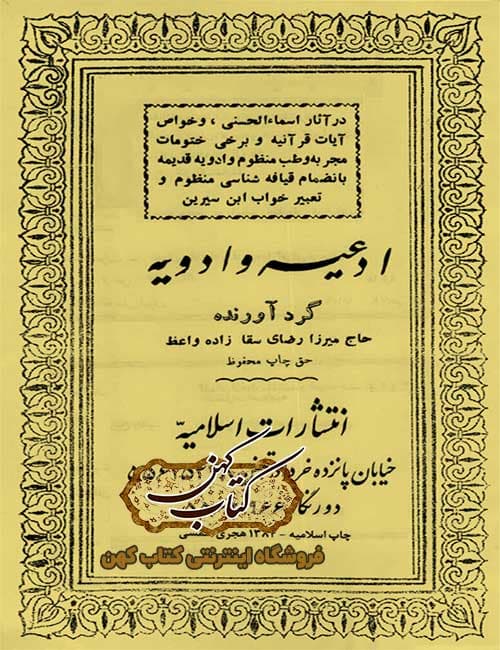 در آثار اسماءالحسنی ، وخواص
آیات قرآنیه و برخی ختومات
مجربه وطب منظوم وادویه قدیمه
بانضمام قیافه شناسی منظوم و
تعبیر خواب ابن سیرین
ادعیه و ادویه
گردآورنده
حاج میرزا رضای سقا زاده واعظ
حق چاپ محفوظ
انتشارات اسلامیه
خیابان پانزده خرداد
کتاب کهن
چاپ اسلامیه - ۱۳۸۲ هجری شمسی
فروشگاه اینترنتی کتاب کهن